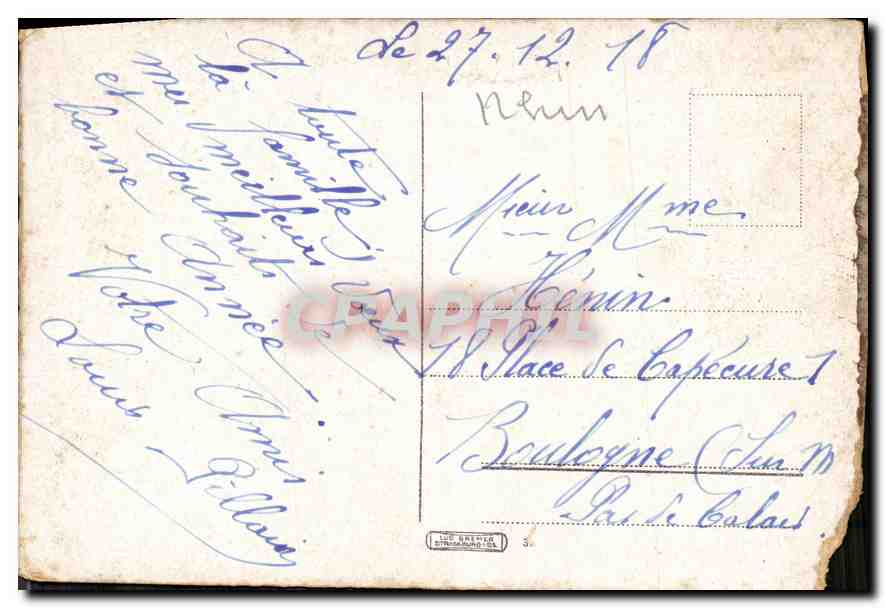 Le 27.12.18
Rhin
A toute
la famille
mes meilleurs Vœux
et souhaits de
bonne Année.
Votre Ami
Louis
Mieur Mme
Hénin
18 Place de Capécure 1
Boulogne (Sur M
Pas de Calais
CPAPHIL
LUC GREMER
STRASSBURG